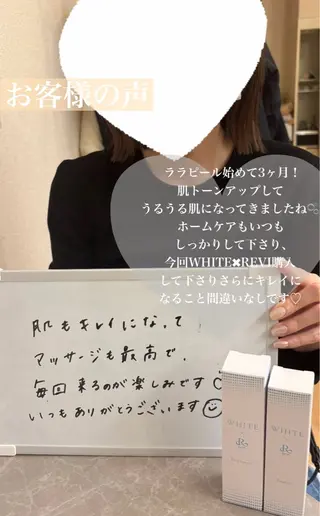 お客様の声
ララピール始めて3ヶ月！
肌トーンアップして
うるうる肌になってきましたね🫧
ホームケアもいつも
しっかりして下さり、
今回WHITE✖REVI購入
して下さりさらにキレイに
なること間違いなしです♡
肌もキレイになって
マッサージも最高で、
毎回来るのが楽しみです♡
いつもありがとうございます☺
WHITE
WHITE